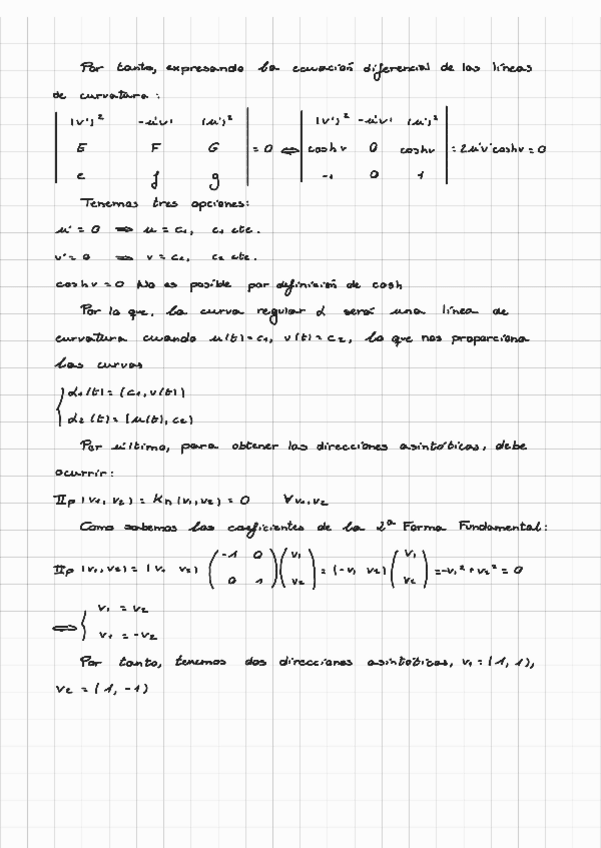 Por tanto, expresando la ecuación diferencial de las líneas
de curvatura:
| (v')² -u'v' (u')² ; E F G ; e f g | = 0 ⟺ | (v')² -u'v' (u')² ; cosh v 0 cosh v ; -1 0 1 | = 2u'v' cosh v = 0
Tenemos tres opciones:
u' = 0 ⟹ u = c₁, c₁ cte.
v' = 0 ⟹ v = c₂, c₂ cte.
cosh v = 0 No es posible por definición de cosh
Por lo que, la curva regular α será una línea de
curvatura cuando u(t) = c₁, v(t) = c₂, lo que nos proporciona
las curvas
{ α₁(t) = (c₁, v(t))
α₂(t) = (u(t), c₂)
Por último, para obtener las direcciones asintóticas, debe
ocurrir:
IIp (v₁, v₂) = Kn (v₁, v₂) = 0 ∀v₁, v₂
Como sabemos los coeficientes de la 2ª Forma Fundamental:
IIp (v₁, v₂) = (v₁ v₂) ( -1 0 ; 0 1 ) ( v₁ ; v₂ ) = (-v₁ v₂) ( v₁ ; v₂ ) = -v₁² + v₂² = 0
⟺ { v₁ = v₂
v₁ = -v₂
Por tanto, tenemos dos direcciones asintóticas, v₁ = (1, 1),
v₂ = (1, -1)